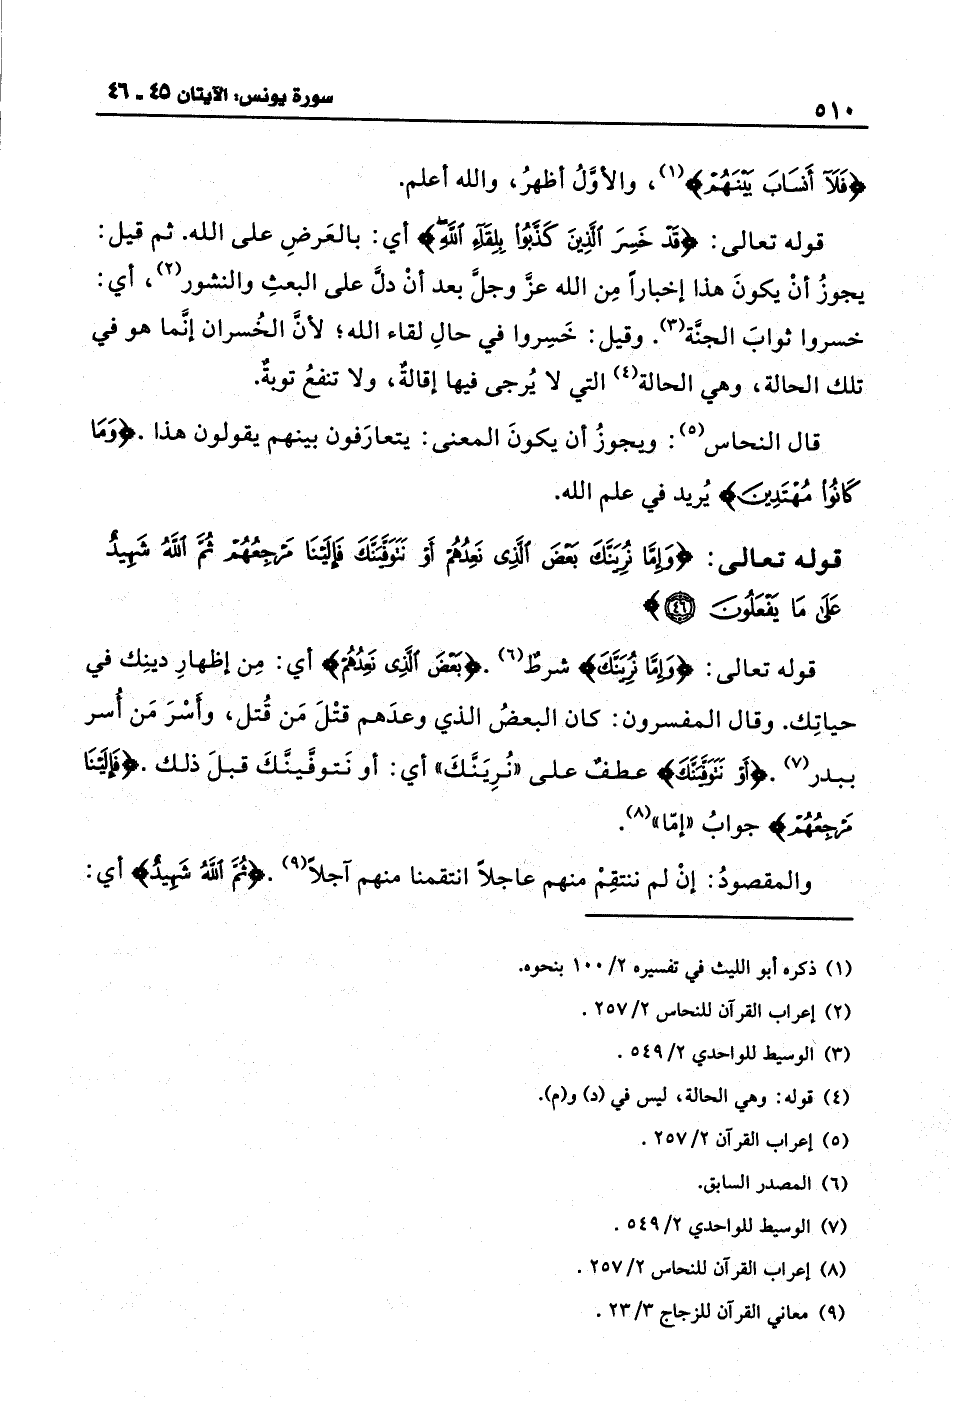 ٥١٠
سورة يونس: الآيتان ٤٥ ـ ٤٦
﴿فَلَآ أَنسَابَ بَيْنَهُمْ﴾(١)، والأوَّلُ أظهرُ، والله أعلم.
قوله تعالى: ﴿قَدْ خَسِرَ ٱلَّذِينَ كَذَّبُوا۟ بِلِقَآءِ ٱللَّهِ﴾ أي: بالعَرضِ على الله. ثم قيل:
يجوزُ أنْ يكونَ هذا إخباراً مِن الله عزَّ وجلَّ بعد أنْ دلَّ على البعثِ والنشور(٢)، أي:
خسروا ثوابَ الجنَّة(٣). وقيل: خَسِروا في حالِ لقاء الله؛ لأنَّ الخُسران إنَّما هو في
تلك الحالة، وهي الحالة(٤) التي لا يُرجى فيها إقالةٌ، ولا تنفعُ توبةٌ.
قال النحاس(٥): ويجوزُ أن يكونَ المعنى: يتعارَفون بينهم يقولون هذا .﴿وَمَا
كَانُوا۟ مُهْتَدِينَ﴾ يُريد في علم الله.
قوله تعالى: ﴿وَإِمَّا نُرِيَنَّكَ بَعْضَ ٱلَّذِى نَعِدُهُمْ أَوْ نَتَوَفَّيَنَّكَ فَإِلَيْنَا مَرْجِعُهُمْ ثُمَّ ٱللَّهُ شَهِيدٌ
عَلَىٰ مَا يَفْعَلُونَ ٤٦﴾
قوله تعالى: ﴿وَإِمَّا نُرِيَنَّكَ﴾ شرطٌ(٦) .﴿بَعْضَ ٱلَّذِى نَعِدُهُمْ﴾ أي: مِن إظهارِ دينِك في
حياتِك. وقال المفسرون: كان البعضُ الذي وعدَهم قتْلَ مَن قُتل، وأَسْرَ مَن أُسر
ببدر(٧) .﴿أَوْ نَتَوَفَّيَنَّكَ﴾ عطفٌ على «نُرِيَنَّكَ» أي: أو نَتوفَّينَّكَ قبلَ ذلك .﴿فَإِلَيْنَا
مَرْجِعُهُمْ﴾ جوابُ «إمّا»(٨).
والمقصودُ: إنْ لم ننتقِمْ منهم عاجلاً انتقمنا منهم آجلاً(٩) .﴿ثُمَّ ٱللَّهُ شَهِيدٌ﴾ أي:
(١) ذكره أبو الليث في تفسيره ٢/ ١٠٠ بنحوه.
(٢) إعراب القرآن للنحاس ٢/ ٢٥٧ .
(٣) الوسيط للواحدي ٢/ ٥٤٩ .
(٤) قوله: وهي الحالة، ليس في (د) و(م).
(٥) إعراب القرآن ٢/ ٢٥٧ .
(٦) المصدر السابق.
(٧) الوسيط للواحدي ٢/ ٥٤٩ .
(٨) إعراب القرآن للنحاس ٢/ ٢٥٧ .
(٩) معاني القرآن للزجاج ٣/ ٢٣ .